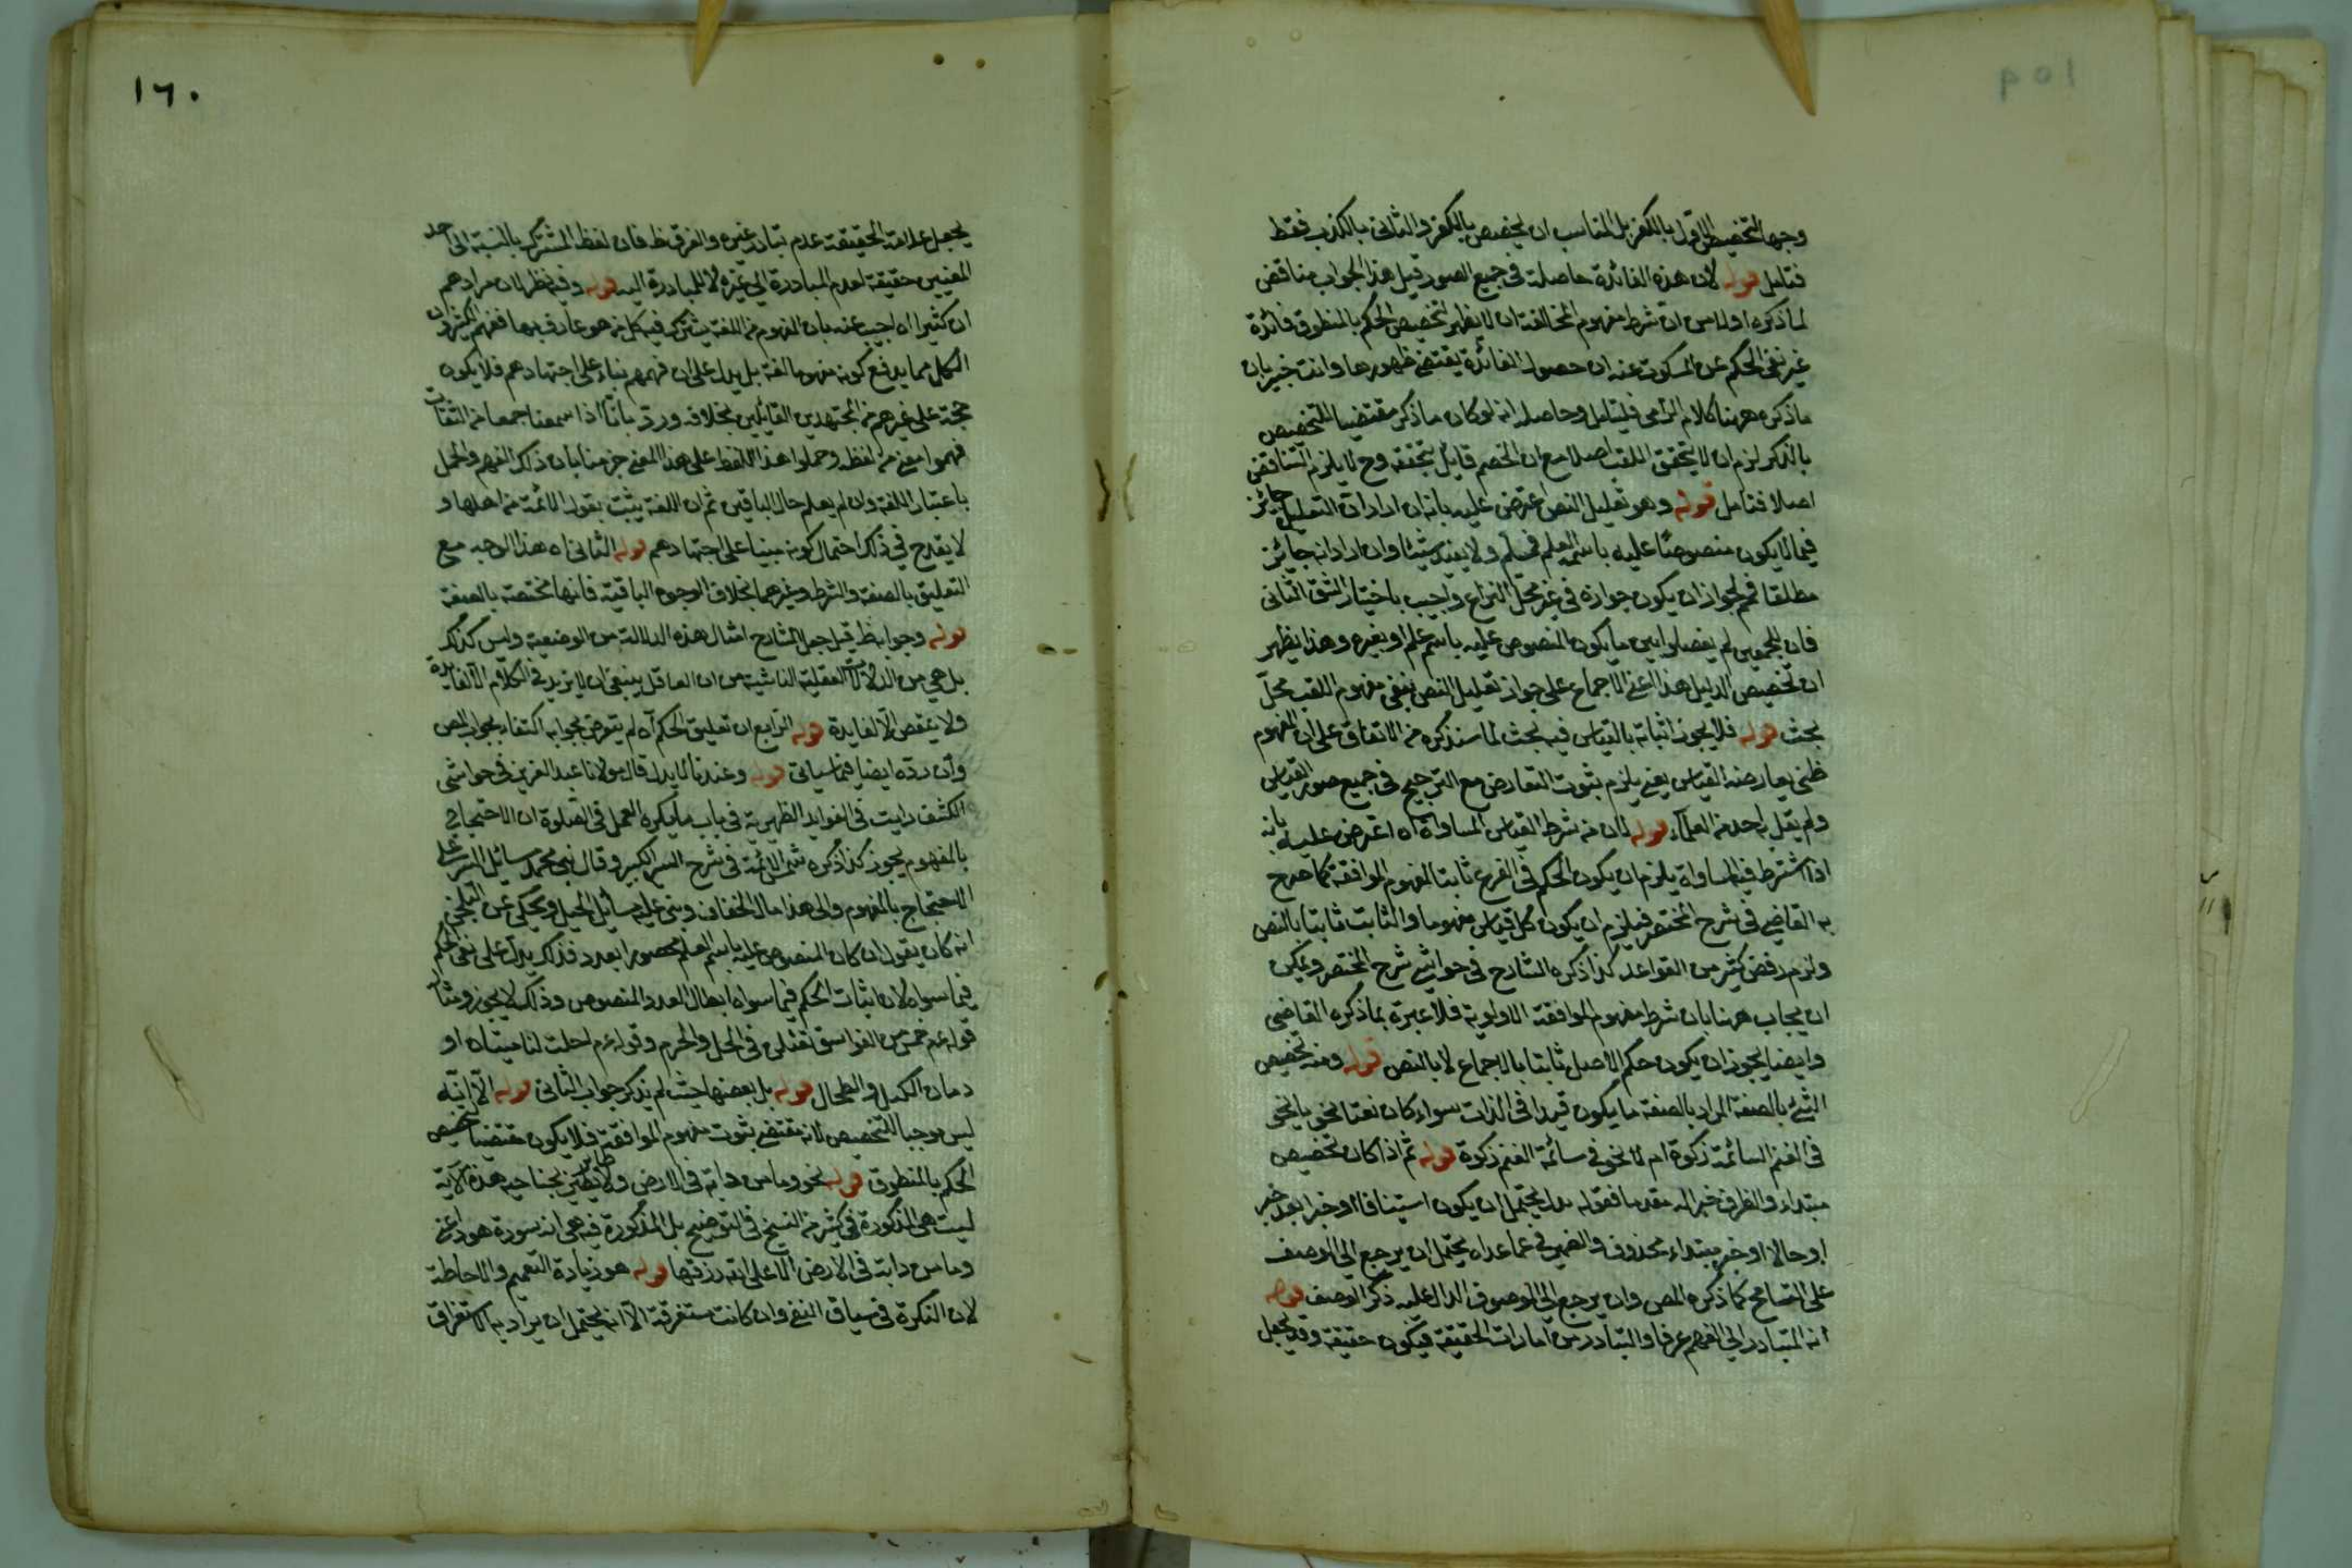 ١٥٩
وجها لتخصيص الاول بالكفر بل المناسب ان يخصص بالكفر والثاني بالكذب فقط
فتامل قوله لان هذه الفائدة حاصلة في جميع الصور قيل هذا الجواب مناقض
لما ذكره اولا من ان شرط مفهوم المخالفة ان لا يظهر لتخصيص الحكم بالمنطوق فائدة
غير نفي الحكم عن المسكوت عنه ان حصول الفائدة يقتضي ظهورها وانت خبير بان
ما ذكره ههنا كلام الزامي فليتامل وحاصله انه لو كان ما ذكر مقتضيا للتخصيص
بالذكر لزم ان لا يتحقق اللقب اصلا مع ان الخصم قايل بتحققه وح لا يلزم التناقض
اصلا فتامل قوله وهو تعليل النص اعترض عليه بانه ان اراد ان التعليل جايز
فيما لا يكون منصوصا عليه باسم العلم فمسلم ولا يفيد شيئا وان اراد انه جايز
مطلقا فم لجواز ان يكون جوازه في غير محل النزاع واجيب باختيار الشق الثاني
فان المجمعين لم يفصلوا بين ما يكون المنصوص عليه باسم علم او بغيره وهذا يظهر
ان تخصيص الدليل هذا اعني الاجماع على جواز تعليل النص بنفي مفهوم اللقب محل
بحث قوله فلا يجوز اثباته بالقياس فيه بحث لما سنذكره من الاتفاق على ان المفهوم
ظني يعارضه القياس يعني يلزم ثبوت التعارض مع الترجيح في جميع صور القياس
ولم يقل به احد من العلماء قوله لان من شرط القياس المساواة اه اعترض عليه بانه
اذا اشترط فيه المساواة يلزم ان يكون الحكم في الفرع ثابتا بمفهوم الموافقة كما صرح
به القاضي في شرح المختصر فيلزم ان يكون كل قياس مفهوما والثابت ثابتا بالنص
ولزم رفض كثير من القواعد كذا ذكره الشارح في حواشي شرح المختصر ويمكن
ان يجاب ههنا بان شرط مفهوم الموافقة الاولوية فلا عبرة بما ذكره القاضي
وايضا يجوز ان يكون حكم الاصل ثابتا بالاجماع لا بالنص قوله ومنه تخصيص
الشيء بالصفة المراد بالصفة ما يكون قيدا في الذات سواء كان نعتا نحويا نحو
في الغنم السائمة زكوة ام لا نحو في سائمة الغنم زكوة قوله ثم اذا كان تخصيص
مبتداء والظرف خبرا له مقدما فقوله يدل يحتمل ان يكون استينافا او خبرا بعد خبر
او حالا او خبر مبتداء محذوف والضمير في عما عداه يحتمل ان يرجع الى الوصف
على التسامح كما ذكره المص وان يرجع الى الموصوف الدال عليه ذكر الوصف قوله
انه المتبادر الى الفهم عرفا والتبادر من امارات الحقيقة فيكون حقيقة وقد يجعل
١٦٠
يجعل علامة الحقيقة عدم تبادر غيره والفرق ظ فان لفظ المشترك بالنسبة الى احد
المعنيين حقيقة لعدم المبادرة الى غيره لا للمبادرة اليه قوله وفيه نظر لان مرادهم
ان كثيرا اه اجيب عنه بان المفهوم من اللغة يشترك فيه كل من هو عارف بها ففهم الكثير دون
الكل مما يدفع كونه مفهوما لغة بل يدل على ان فهمهم بناء على اجتهادهم فلا يكون
حجة على غيرهم من المجتهدين القائلين بخلافه ورد بانا اذا سمعنا جمعا من الثقات
فهموا معنى من لفظ وحملوا هذا اللفظ على هذا المعنى جزمنا بان ذلك الفهم والحمل
باعتبار اللغة وان لم يعلم حال الباقين ثم ان اللغة يثبت بقول الائمة من اهلها و
لا يقدح في ذلك احتمال كونه مبنيا على اجتهادهم قوله الثاني اه هذا الوجه مع
التعليق بالصفة والشرط وغيرهما بخلاف الوجوه الباقية فانها مختصة بالصفة
قوله وجوابه ظ قيل جعل الشارح امثال هذه الدلالة من الوضعية وليس كذلك
بل هي من الدلالات العقلية الناشية من ان العاقل ينبغي ان لا يزيد في الكلام الا لفايدة
ولا ينقص الا لفايدة قوله الرابع ان تعليق الحكم آه لم يتعرض بجوابه اكتفاء بجواب المص
وان رده ايضا فيما سياتي قوله وعندنا لا يدل قال مولانا عبد العزيز في حواشي
الكشف رايت في الفوايد الظهيرية في باب ما يكره العمل في الصلوة ان الاحتجاج
بالمفهوم يجوز كذا ذكره شمس الائمة في شرح السير الكبير وقال بنى محمد مسائل السير على
الاحتجاج بالمفهوم والى هذا مال الخصاف وبنى عليه مسائل الحيل ويحكى عن الثلجي
انه كان يقول ان كان المنصوص عليه باسم العلم محصورا بعدد فذلك يدل على نفي الحكم
فيما سواه لان اثبات الحكم فيما سواه ابطال العدد المنصوص وذلك لا يجوز ومثاله
قوله عم خمس من الفواسق تقتلن في الحل والحرم وقوله عم احلت لنا ميتتان او
دمان الكبد والطحال قوله بل بعضها حيث لم يذكر جواب الثاني قوله الا انه
ليس موجبا للتخصيص لانه مقتضي ثبوت مفهوم الموافقة فلا يكون مقتضيا تخصيص
الحكم بالمنطوق قوله نحو وما من دابة في الارض ولا طاير يطير بجناحيه هذه الآية
ليست هي المذكورة في كثير من النسخ في التوضيح بل المذكورة فيه هي انه سورة هود اعني
وما من دابة في الارض الا على الله رزقها قوله هو زيادة التعميم والاحاطة
لان النكرة في سياق النفي وان كانت مستغرقة الا انه يحتمل ان يراد به الاستغراق